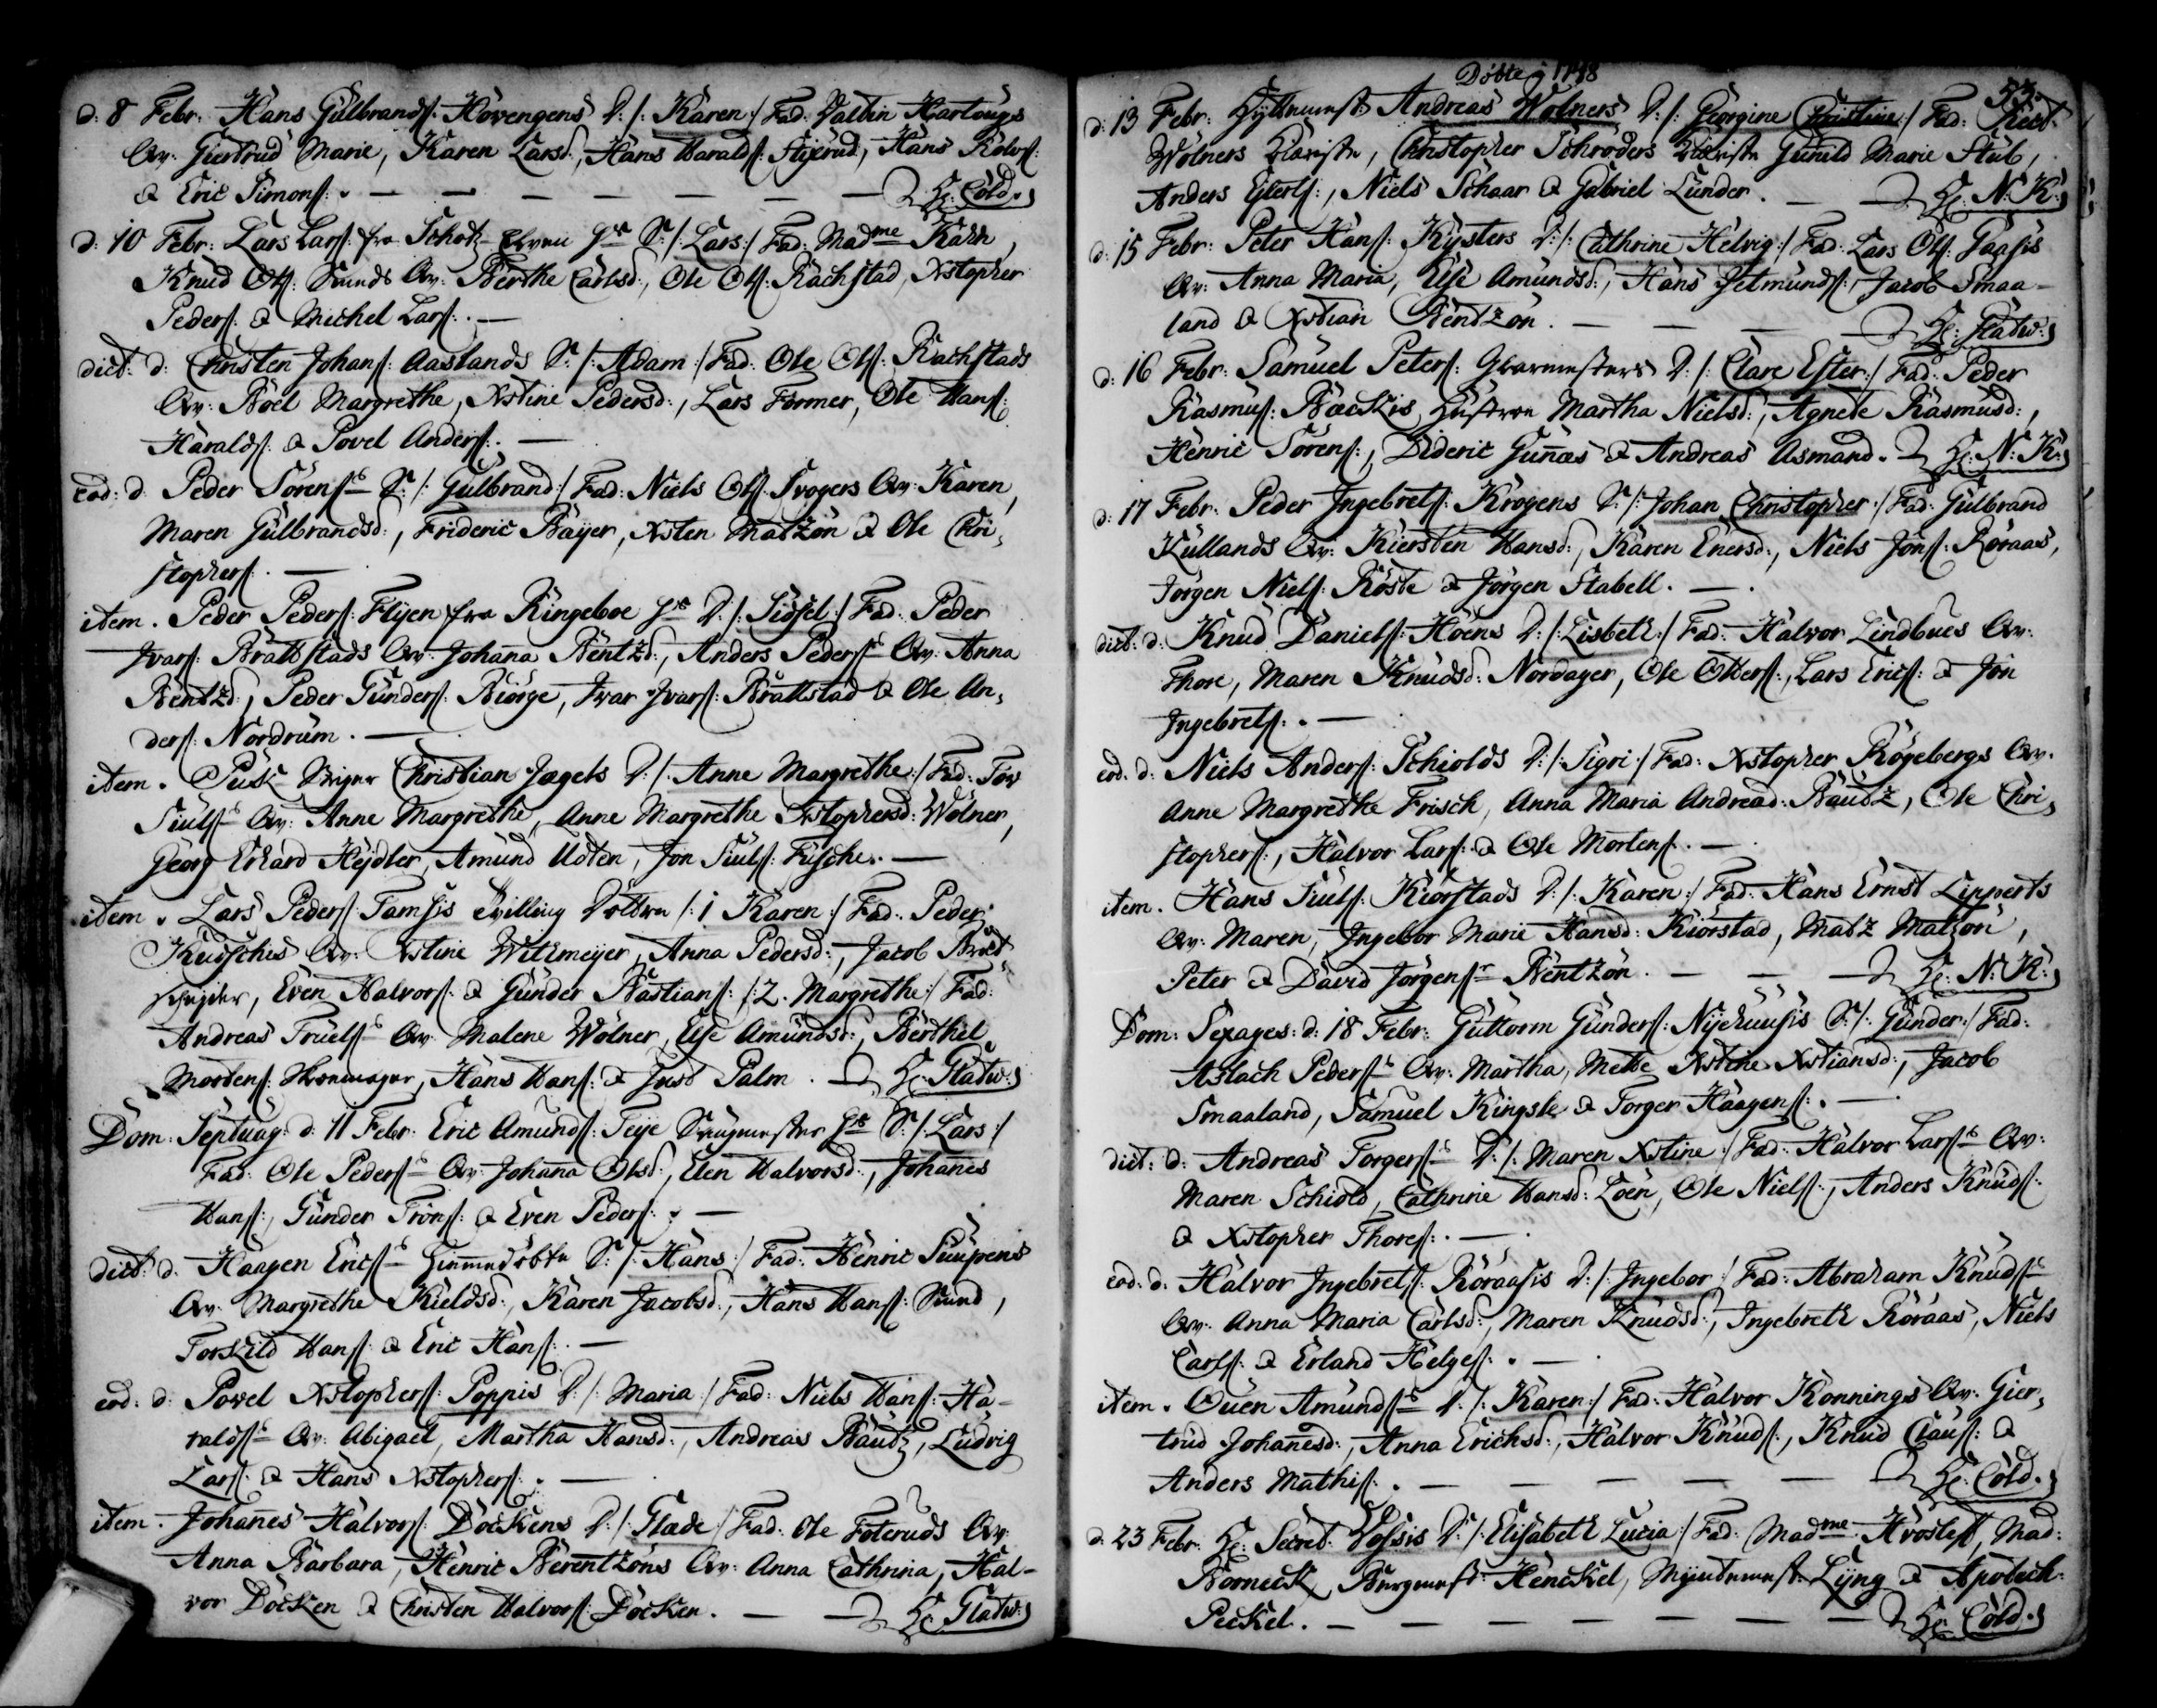 d: 8 Febr. Hans Gulbrands: Hovengens D: /: Karen :/ Fad: Valtin Hartougs
Qv: Giertrud Marie, Karen Larsd:, Hans Harald: Stixrud, Hans Rolvs:
& Eric Simons: . — — — — — — Hr: Cold.
d: 10 Febr: Lars Lars: fra Schotz-Elven hs S: /: Lars :/ Fad: Madme Karn,
Knud Ols: Sunds Qv: Berthe Carlsd:, Ole Ols: Rachstad, Xstopher
Peders: & Michel Lars: . —
dict: d: Christen Johans: Aaslands S: /: Adam :/ Fad: Ole Ols: Rachstads
Qv: Boel Margrethe, Xstine Pedersd:, Lars Former, Ole Hans:
Haralds: & Povel Anders: . —
eod: d: Peder Sörens: S: /: Gulbrand :/ Fad: Niels Ols: Svogers Qv: Karen,
Maren Gulbrandsd:, Frideric Bayer, Xsten Matzon & Ole Chri,
stophers: . —
item. Peder Peders: Flyen fra Ringeboe hs D: /: Sissel :/ Fad: Peder
Ivars: Brattstads Qv: Johana Bentzd:, Anders Peders: Qv: Anna
Bentzd:, Peder Gunders: Biörge, Ivar Ivars: Brattstad & Ole An,
ders: Nordrum. —
item. Christian Jægels D: /: Anne Margrethe :/ Fad: Tov
Siuls: Qv: Anne Margrethe, Anne Margrethe Xstophersd: Wölner,
Georg Erhard Hejdler, Amund Udten, Jon Siuls: Fische. —
item. Lars Peders: Famsis Tvilling Döttre /: 1 Karen :/ Fad: Peder
Kudsches Qv: Xstine Witzmeyer, Anna Pedersd:, Jacob Brot
schejder, Even Halvors: & Gunder Bastians: /: 2. Margrethe :/ Fad:
Andreas Truels: Qv: Malene Wölner, Else Amundsd:, Berthel
Mortens: , Hans Hans: & Just Palm. — Hr: Flatw:
Dom: Septuag: d: 11 Febr: Eric Amunds: Teije hs S: /: Lars :/
Fad: Ole Peders: Qv: Johana Olsd:, Elen Halvorsd:, Johanes
Hans:, Gunder Trons: & Even Peders: . —
dict: d: Haagen Erics: Hiemmedöbte S: /: Hans :/ Fad: Henric Suupens
Qv: Margrethe Kieldsd:, Karen Jacobsd:, Hans Hans: Sund,
Torskild Hans: & Eric Hans: . —
eod: d: Povel Xstophers: Poppis D: /: Maria :/ Fad: Niels Hans: Ha-
ralds: Qv: Abigael, Martha Hansd:, Andreas Bautz, Ludvig
Lars: & Hans Xstophers: . —
item. Johanes Halvors: Döckens D: /: Glæde :/ Fad: Ole Foteruds Qv:
Anna Barbara, Henric Berentzöns Qv: Anna Cathrina, Hal-
vor Döcken & Christen Halvors: Döcken. — — Hr: Flatw:
Döbte 1748
53.
d: 13 Febr: Hyttemest: Andreas Wölners D: /: Georgine Christine :/ Fad:
Wölners Kieriste, Christopher Schröders Kieriste Gunild Marie Stub,
Anders Eylerts:, Niels Schaar & Gabriel Lunder. — — Hr: N: K:
d: 15 Febr: Peter Hans: Kysters D: /: Cathrine Helvig :/ Fad: Lars Ols: Gaasis
Qv: Anna Maria, Else Amundsd:, Hans Jetmunds:, Jacob Smaa-
land & Xstian Bentzön. — — — — Hr: Flatw:
d: 16 Febr: Samuel Peters: Gvarmesters D: /: Clare Ester :/ Fad: Peder
Rasmus: Bæckis Hustroe Martha Nielsd:, Agnete Rasmusd:,
Henric Sörens:, Dideric Gunæs & Andreas Asmand. Hr: N: K:
d: 17 Febr: Peder Ingebrets: Krogens S: /: Johan Christopher :/ Fad: Gulbrand
Kullands Qv: Kiersten Hansd:, Karen Enersd:, Niels Jons: Röraas,
Jörgen Niels: Röste & Jörgen Stabell. — .
dict: d: Knud Daniels: Höens D: /: Lisbeth :/ Fad: Halvor Lindbues Qv:
Thore, Maren Knudsd: Nordager, Ole Olters:, Lars Erics: & Jon
Ingebrets: . —
eod: d: Niels Anders: Schiolds D: /: Sigri :/ Fad: Xstopher Rögebergs Qv:
Anne Margrethe Frisch, Anna Maria Andread: Bautz, Ole Chri,
stophers:, Halvor Lars: & Ole Mortens: . —
item. Hans Siuls: Kiörstads D: /: Karen :/ Fad: Hans Ernst Lipperts
Qv: Maren, Ingebor Marie Hansd: Kiörstad, Matz Matzon,
Peter & David Jörgens: Bentzön. — — Hr: N: K:
Dom: Sexages: d: 18 Febr: Guttorm Gunders: Nyehuusis S: /: Gunder :/ Fad:
Aslach Peders: Qv: Martha, Mette Xstine Xstiansd:, Jacob
Smaaland, Samuel Kingste & Torger Haagens: . —
dict: d: Andreas Torgers: D: /: Maren Xstine :/ Fad: Halvor Lars: Qv:
Maren Schiold, Cathrine Hansd: Loen, Ole Niels:, Anders Knuds:
& Xstopher Thores: . — .
eod: d: Halvor Ingebrets: Röraasis D: /: Ingebor :/ Fad: Abraham Knuds:
Qv: Anna Maria Carlsd:, Maren Knudsd:, Ingebreth Röraas, Niels
Carls: & Erland Helges: . — .
item. Ouen Amunds: D: /: Karen :/ Fad: Halvor Konnings Qv: Gier,
trud Johanesd:, Anna Erichsd:, Halvor Knuds:, Knud Claus: &
Anders Mathis: . — — — — — Hr: Cold.
d: 23 Febr: Hr: Secret: Vossis D: /: Elisabeth Lucia :/ Fad: Madme , Mad:
Borneck, Burgmest: Henckel, Myntemest: Lyng & Apoteck:
Peckel. — — — — — — Hr: Cold.